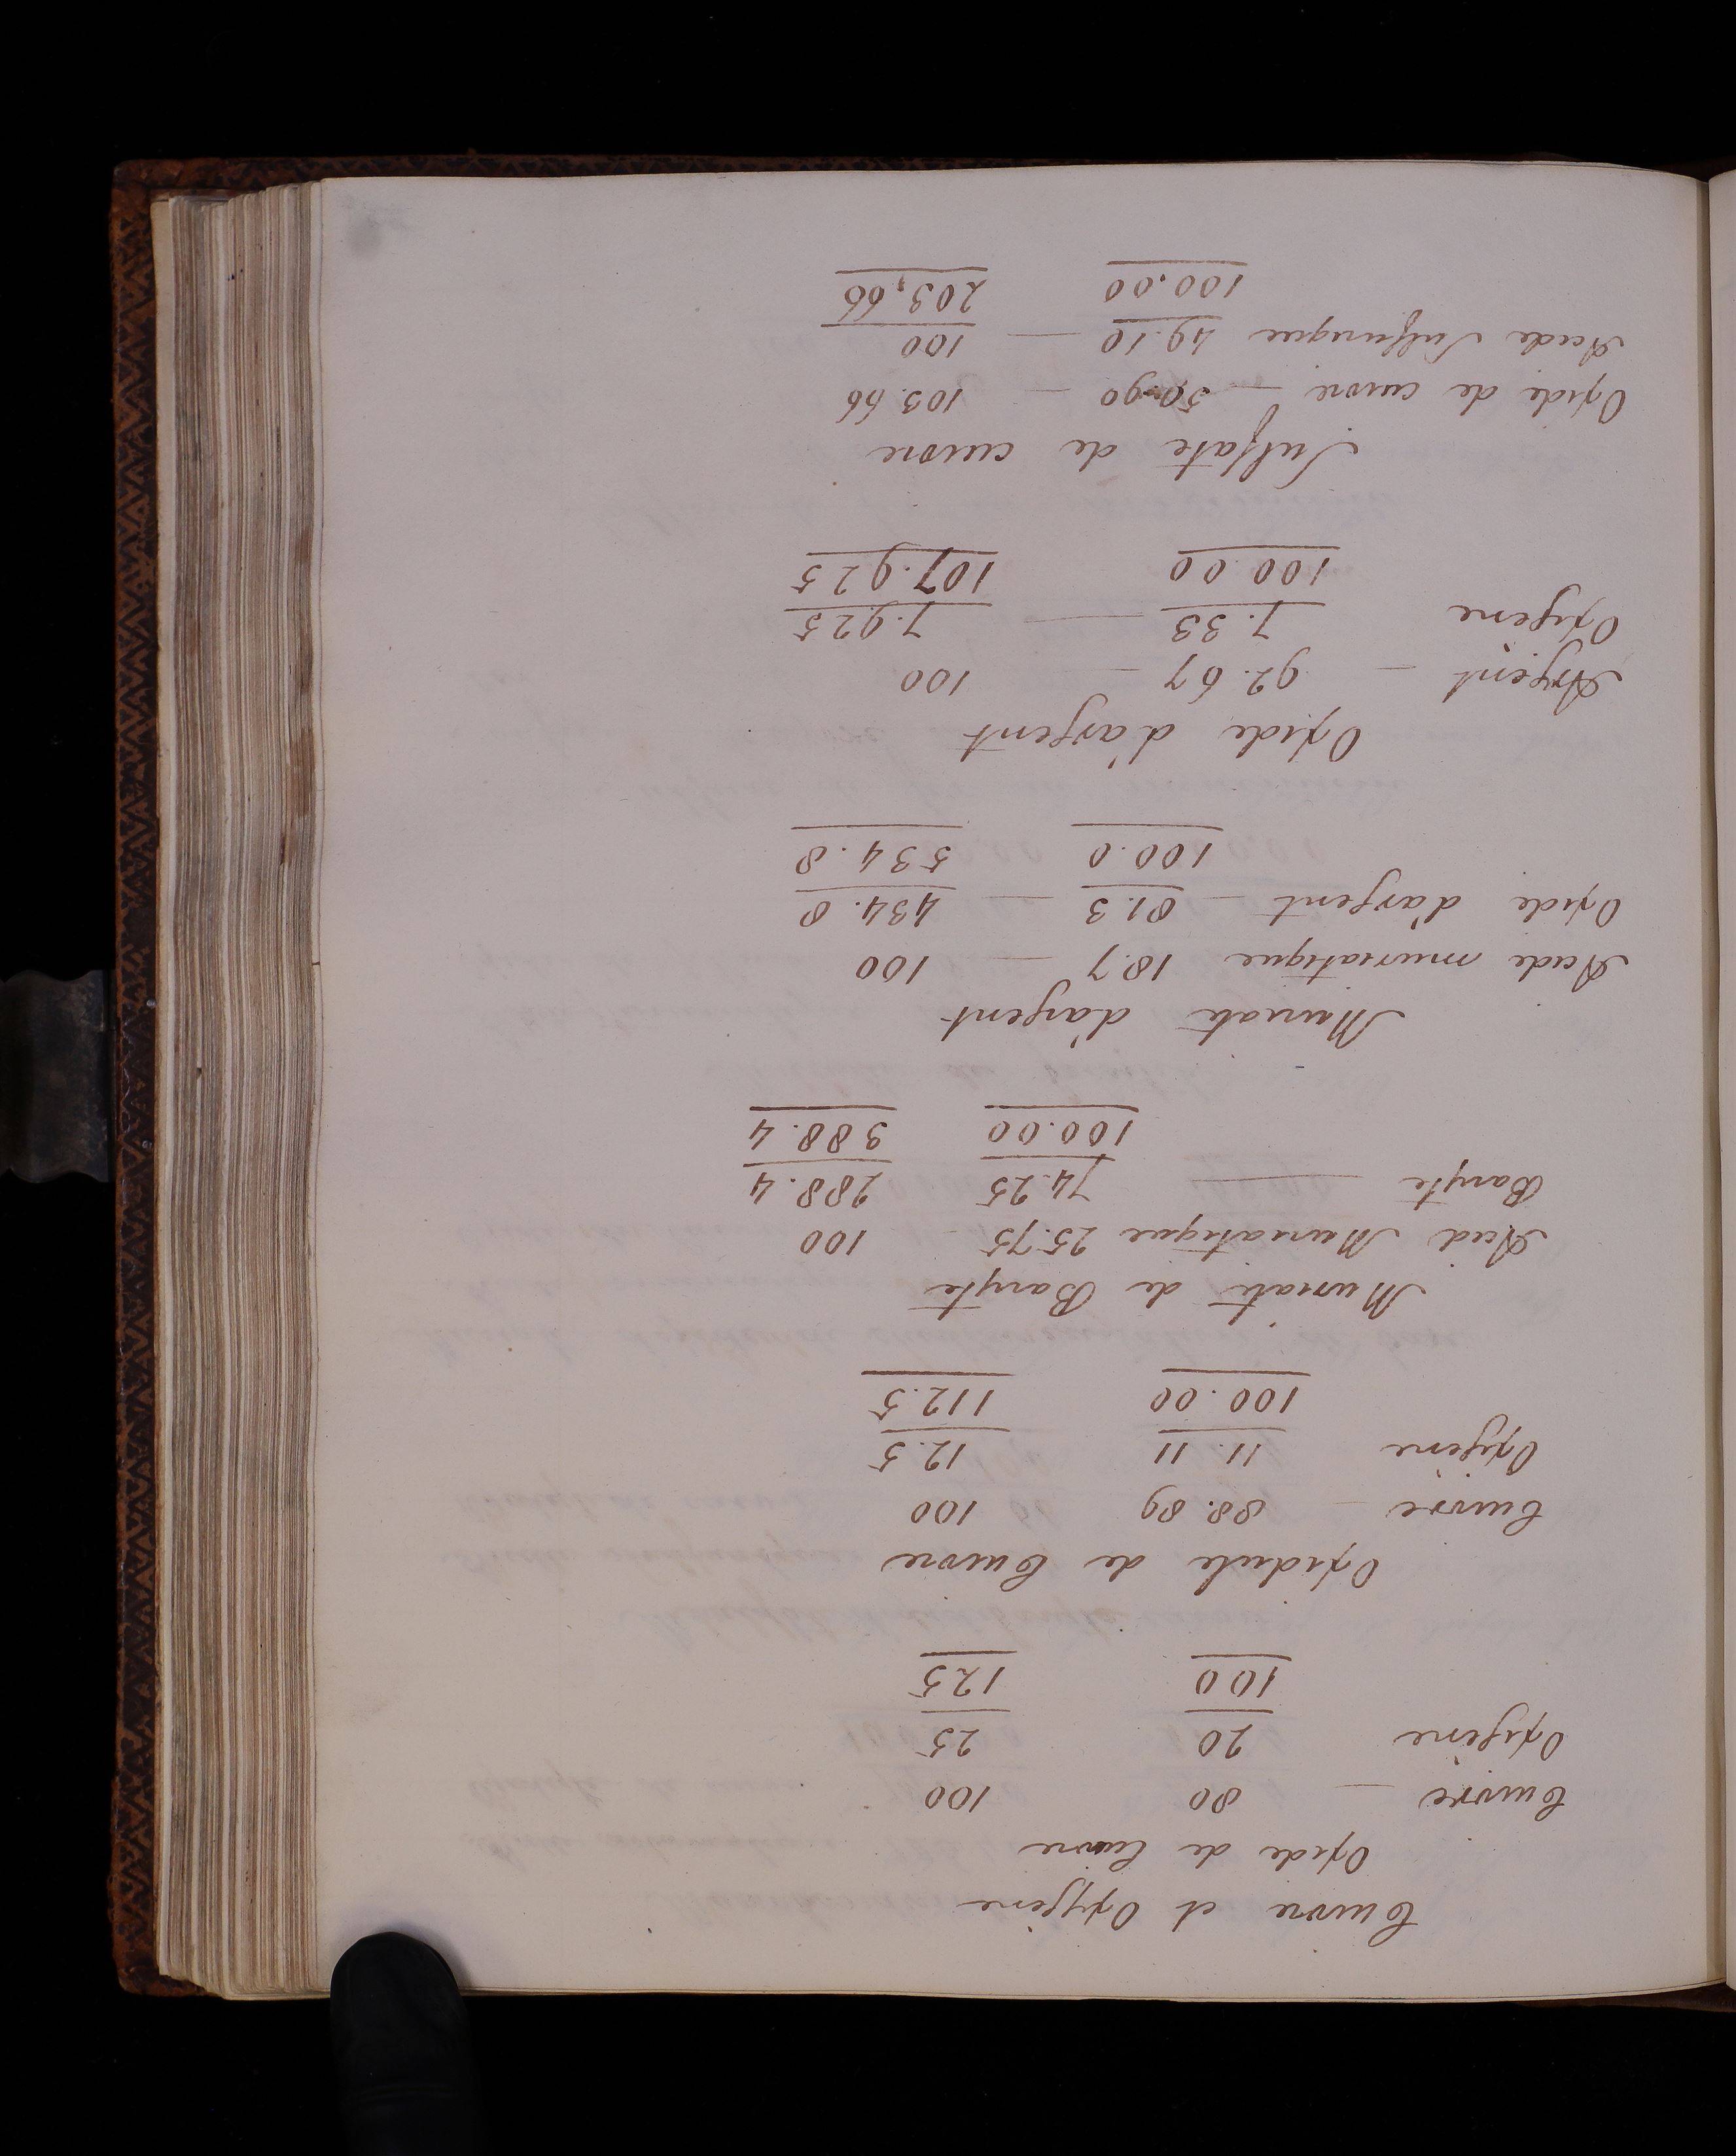 Cuivre et Oxygène
Oxide de Cuivre
Cuivre — 80 100
Oxigène 20 25
100 125
Oxidule de Cuivre
Cuivre — 88.89 100
Oxigène 11.11 12.5
100.00 112.5
Muriate de Baryte
Acid Muriatique 25.75 — 100
Baryte — 74.25 288.4
100.00 388.4
Muriate d'argent
Acide muriatique 18.7 — 100
Oxide d'argent — 81.3 — 434.8
100.0 534.8
Oxide d'argent
Argent — 92.67 — 100
Oxigene 7.33 — 7.925
100.00 107.925
Sulfate de cuivre
Oxide de cuivre — 50.90 — 103.66
Acide Sulfurique 49.10 — 100
100.00 203,66